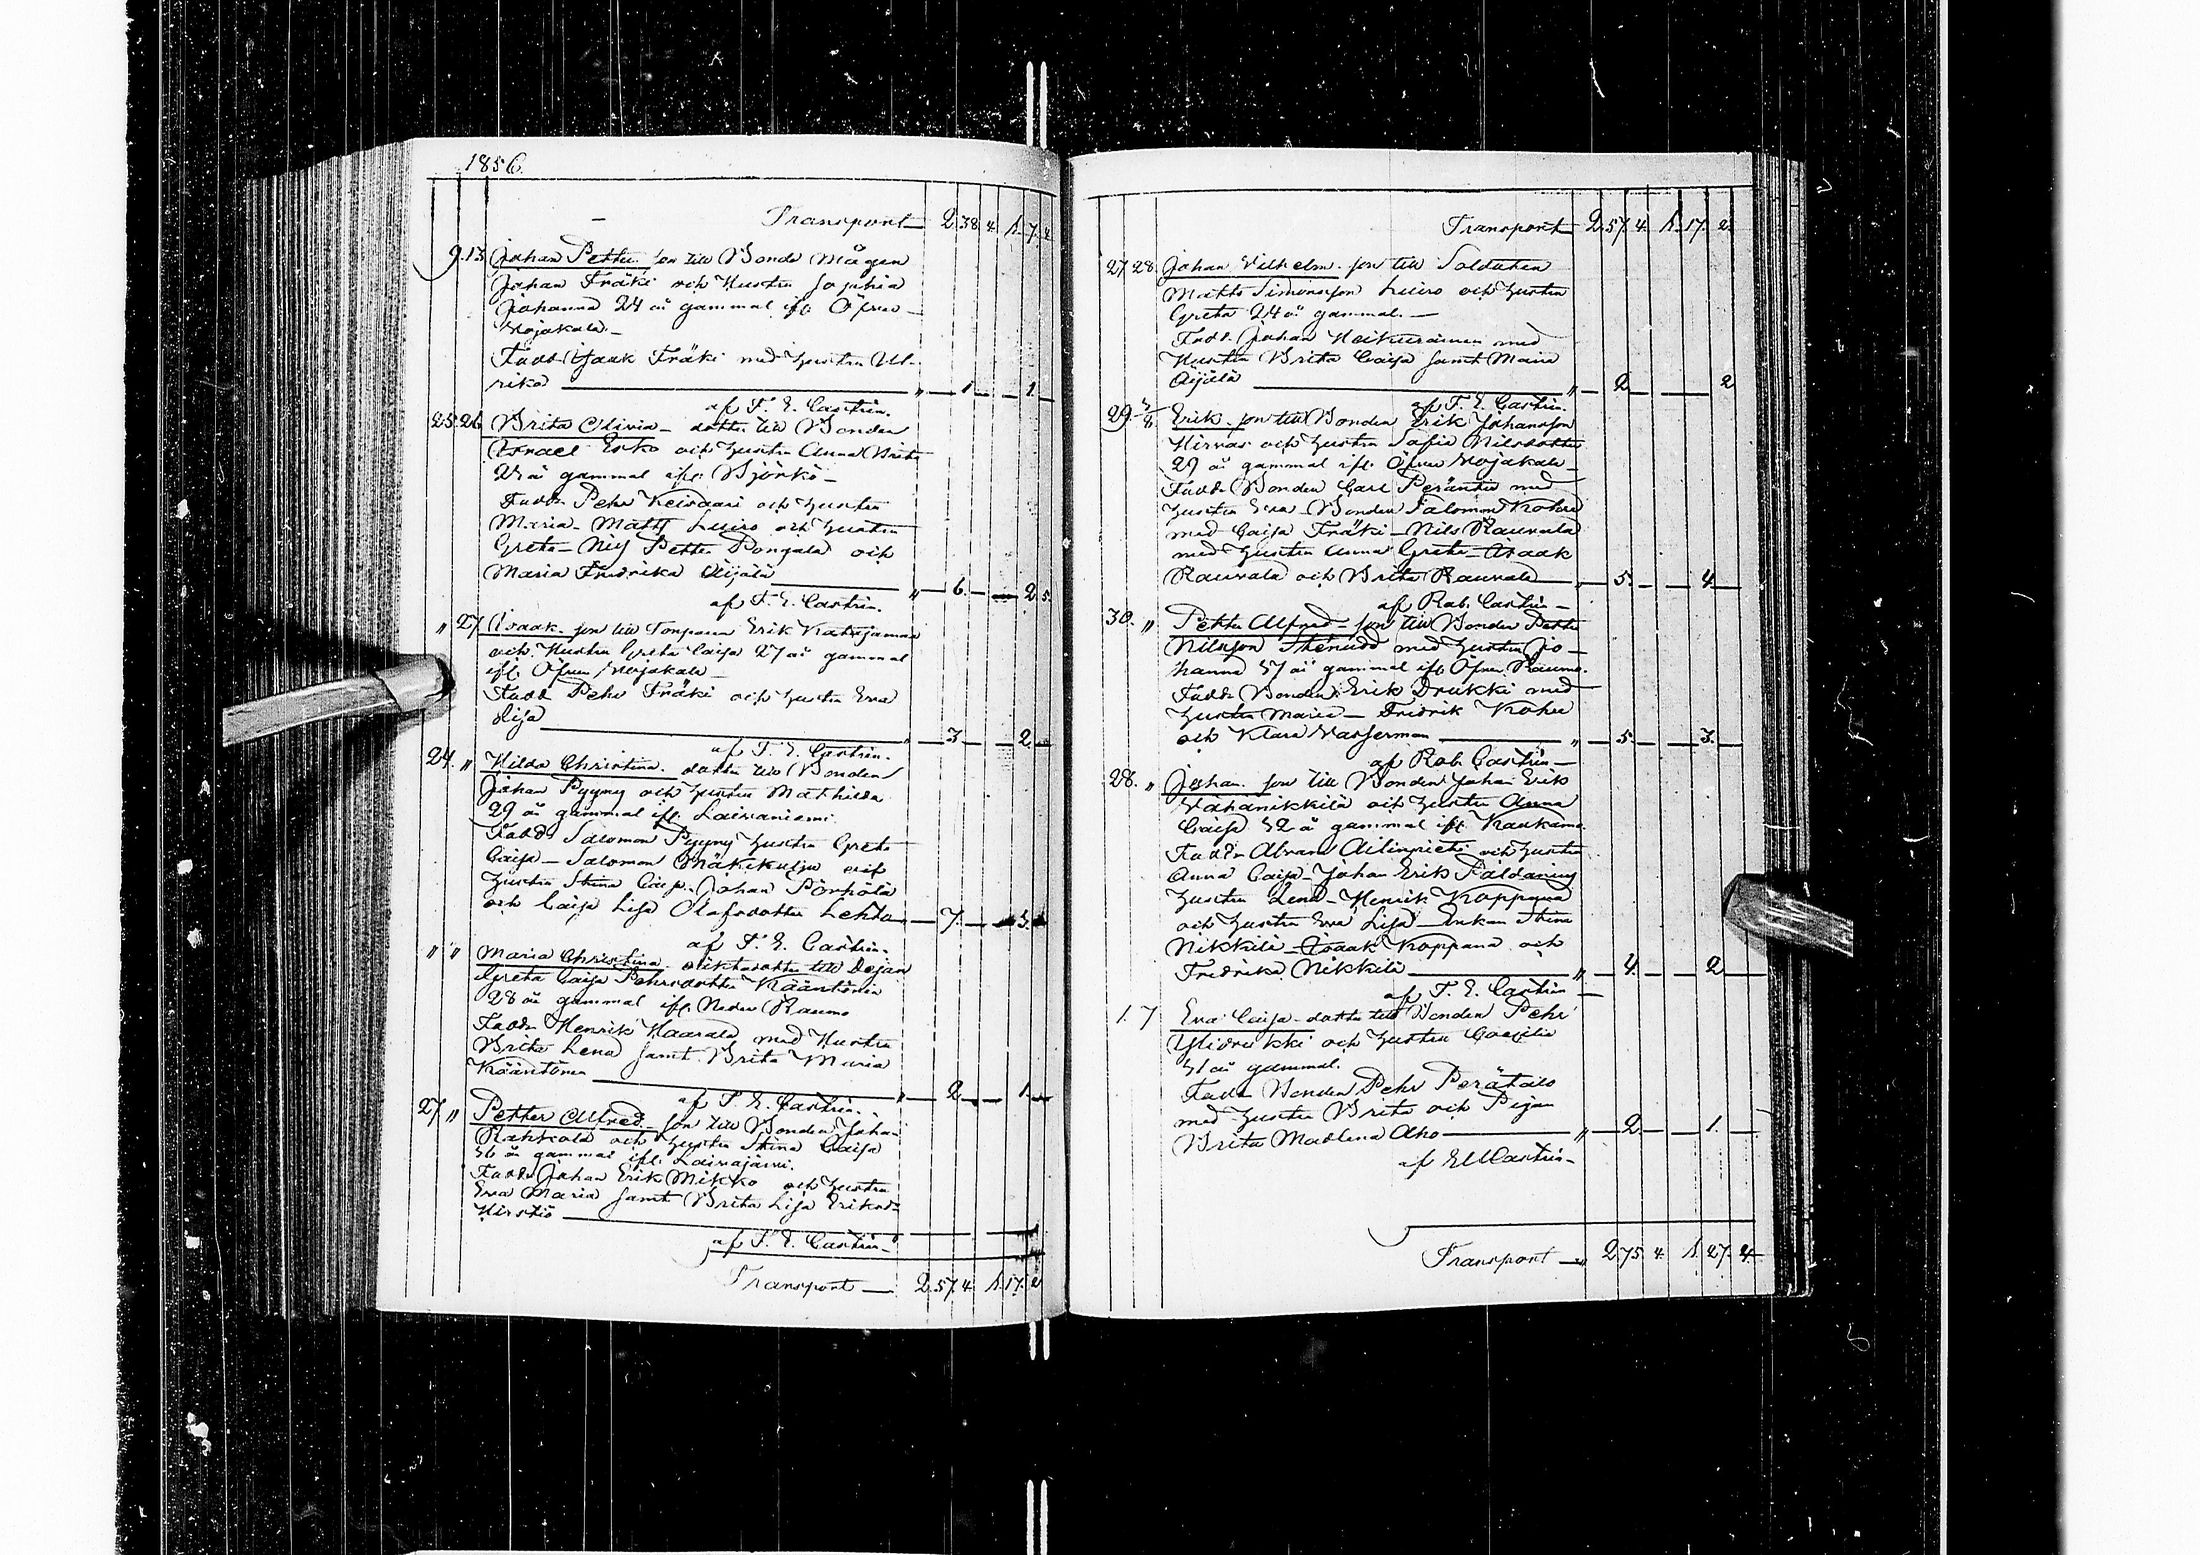 1856.
Transport 2.38.4. 1.7.2.
9.13. Johan Petter son till Bonde Mågen
Johan Fräki och Hustru Sophia
Johanna 24 år gammal ifr. Öfver
Vojakala.
Fadd. Isaak Fräki med Hustru Ul-
rika " 1 1
af F. E. Castrén.
25.26. Brita Olivia dotter till Bonden
Israel Erko och Hustru Anna Brita
år gammal ifr. Björkö
Fadd. Pehr Keisaari och Hustru
Maria - Matts Luiro och Hustru
Greta - Petter Pongala och
Maria Fredrika Äijälä " 6. 2
af F. E. Castrén.
" 27 Isaak son till Torparen Erik
och Hustru Greta Caisa 27 år gammal
ifr. Öfver Vojakala
Fadd. Pehr Fräki och Hustru Eva
Lisa " 3 2
af F. E. Castrén.
24. " Hilda Christina dotter till Bonden
Johan Pyyny och Hustru Mathilda
29 år gammal ifr. Laivaniemi.
Fadd. Salomon Pyyny Hustru Greta
Caisa - Salomon och
Hustru Stina Caisa. Johan Pörhölä
och Caisa Lisa Olofsdotter Lehto 7. 3
af F. E. Castrén.
" " Maria Christina dotter till Pigan
Greta Caisa Pehrsdotter Kääntönen
28 år gammal ifr. Neder Raumo
Fadd. Henrik Haarala med Hustru
Brita Lena samt Brita Maria
Kääntönen " 2 1
af F. E. Castrén.
27 " Petter Alfred son till Bonden Johan
Rahkola och Hustru Stina Caisa
36 år gammal ifr. Laivajärvi.
Fadd. Johan Erik Mikko och Hustru
Eva Maria samt Brita Lisa Eriksd.
Hirstiö
af F. E. Castrén
Transport 2.57.4. 1.17.2
Transport 2.57.4. 1.17.2.
27.28. Johan Vilhelm son till Soldaten
Matts Simonsson Luiro och Hustru
Greta 24 år gammal.
Fadd. Johan Heikurainen med
Hustru Brita Caisa samt Maria
Äijälä " 2 2
af F. E. Castrén.
29. Erik son till Bonden Erik Johansson
Hirvas och Hustru Sofia Nilsdotter
29 år gammal ifr. Öfver Vojakala
Fadd. Bonden Carl Peräntie med
Hustru Eva - Bonden Salomon Koku
med Caisa Fräki - Nils Rauvala
med Hustru Anna Greta - Isaak
Rauvala och Brita Rauvala " 5. 4.
af Rob. Castrén
30. " Petter Alfred son till Bonden Petter
Nilsson Stenudd med Hustru Jo-
hanna 37 år gammal ifr. Öfver Raumo.
Fadd. Bonden Erik Drukki med
Hustru Maria - Fredrik Koku
och Klara Vasserman " 5. 3.
af Rob. Castrén
28. " Johan son till Bonden Johan Erik
Vähänikkilä och Hustru Anna
Caisa 32 år gammal ifr. Kaakama
Fadd. Abram Ailinpieti och Hustru
Anna Caisa - Johan Erik Paldanius
Hustru Lena - Henrik Koppana
och Hustru Eva Lisa - Enkan Stina
Nikkilä - Isaak Koppana och
Fredrika Nikkilä " 4. 2
af F. E. Castrén
1. 7 Eva Caisa dotter till Bonden Pehr
Ylidrukki och Hustru Caecilia
31 år gammal.
Fadd. Bonden Pehr Perätalo
med Hustru Brita och Pigan
Brita Madlena Aho " 2. 1.
af E M Castrén
Transport 2.75.4. 1.27.2